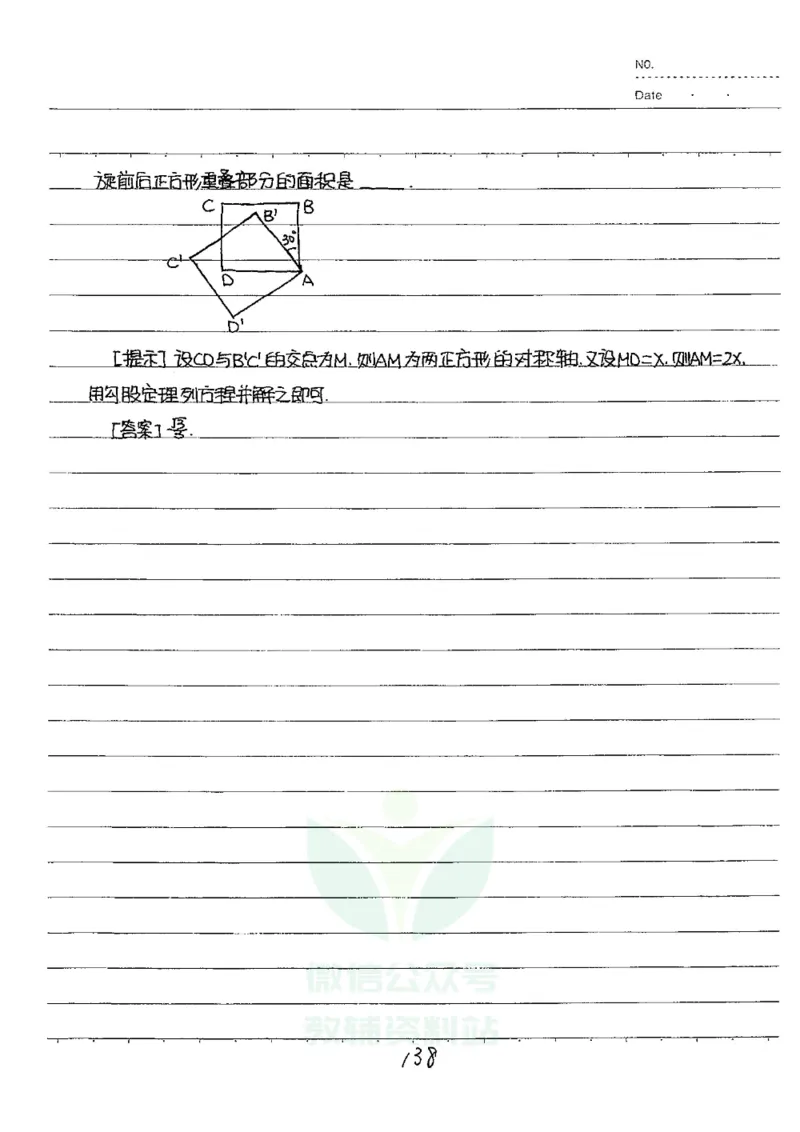 NO.
Date
旋前后正方形重叠部分的面积是____.
C B' B
30°
C' D A
D'
[提示] 设CD与B'C'的交点为M.则AM为两正方形的对称轴.又设MD=X.则AM=2X,
用勾股定理列方程并解之即可.
[答案]
微信公众号
教辅资料站
138